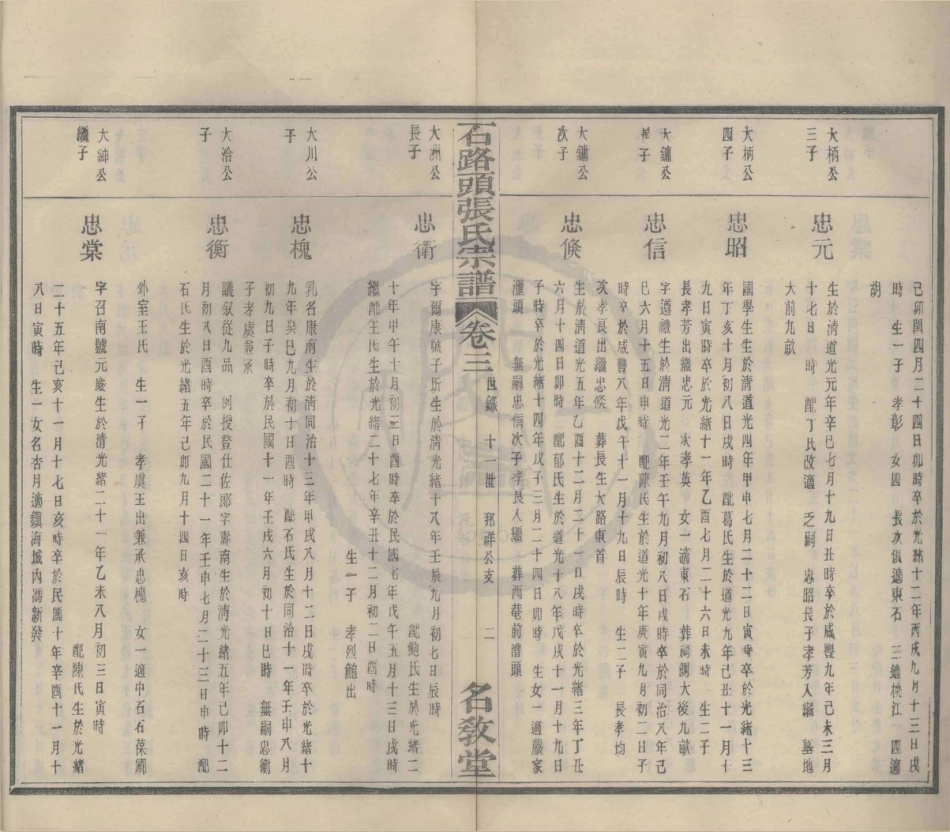 己卯閏四月二十四日卯時卒於光緒十二年丙戌九月十三日戌
時　生一子　孝彰　女四　長次俱適東石　三適桃江　四適
胡
大柄公
三子
忠元
生於清道光元年辛巳七月十九日丑時卒於咸豐九年己未三月
十七日　時　配丁氏改適　乏嗣　忠昭長子孝芳入繼　墓地
大前九畝
大柄公
四子
忠昭
國學生生於清道光四年甲申七月二十二日寅時卒於光緒十三
年丁亥十月初八日戌時　配葛氏生於道光九年己丑十一月十
九日寅時卒於光緒十一年乙酉七月二十六日未時　生二子
長孝芳出繼忠元　次孝英　女一適東石　葬祠南大後九畝
大鏞公
長子
忠信
字道禮生於清道光二年壬午九月初八日戌時卒於同治八年己
巳六月十五日申時　配陳氏生於道光十年庚寅九月初二日子
時卒於咸豐八年戊午十一月十九日辰時　生二子　長孝均
次孝良出繼忠倏　葬長生大路東首
大鏞公
次子
忠倏
生於清道光五年乙酉十二月二十一日戌時卒於光緒三年丁丑
六月十四日卯時　配郁氏生於道光十八年戊戌十一月十九日
子時卒於光緒十四年戊子三月二十四日卯時　生女一適嚴家
滙頭　無嗣忠信次子孝良入繼　葬西菴前漕頭
石路頭張氏宗譜　卷三　世錄　十一世　邦祥公支　二　名教堂
大洲公
長子
忠衛
字爾康號子圻生於清光緒十八年壬辰九月初七日辰時
配鮑氏生於光緒二
十年甲午十月初三日酉時卒於民國七年戊午五月十三日戌時
繼配王氏生於光緒二十七年辛丑十二月初二日酉時
生一子　孝烈鮑出
大川公
子
忠槐
乳名康南生於清同治十三年甲戌八月十二日戌時卒於光緒十
九年癸巳九月初十日酉時　配石氏生於同治十一年壬申八月
初九日子時卒於民國十一年壬戌六月初十日巳時　無嗣忠衡
子孝虞兼承
大治公
子
忠衡
議敘從九品　例授登仕佐郎字壽南生於清光緒五年己卯十二
月初八日酉時卒於民國二十一年壬申七月二十三日申時　配
石氏生於光緒五年己卯九月十四日亥時
外室王氏　生一子　孝虞王出兼承忠槐　女一適中石石葆頤
大紳公
繼子
忠棠
字召南號元慶生於清光緒二十一年乙未八月初三日寅時
配陳氏生於光緒
二十五年己亥十一月十七日亥時卒於民國十年辛酉十一月十
八日寅時　生一女名杏月適鎮海城內蔣新發